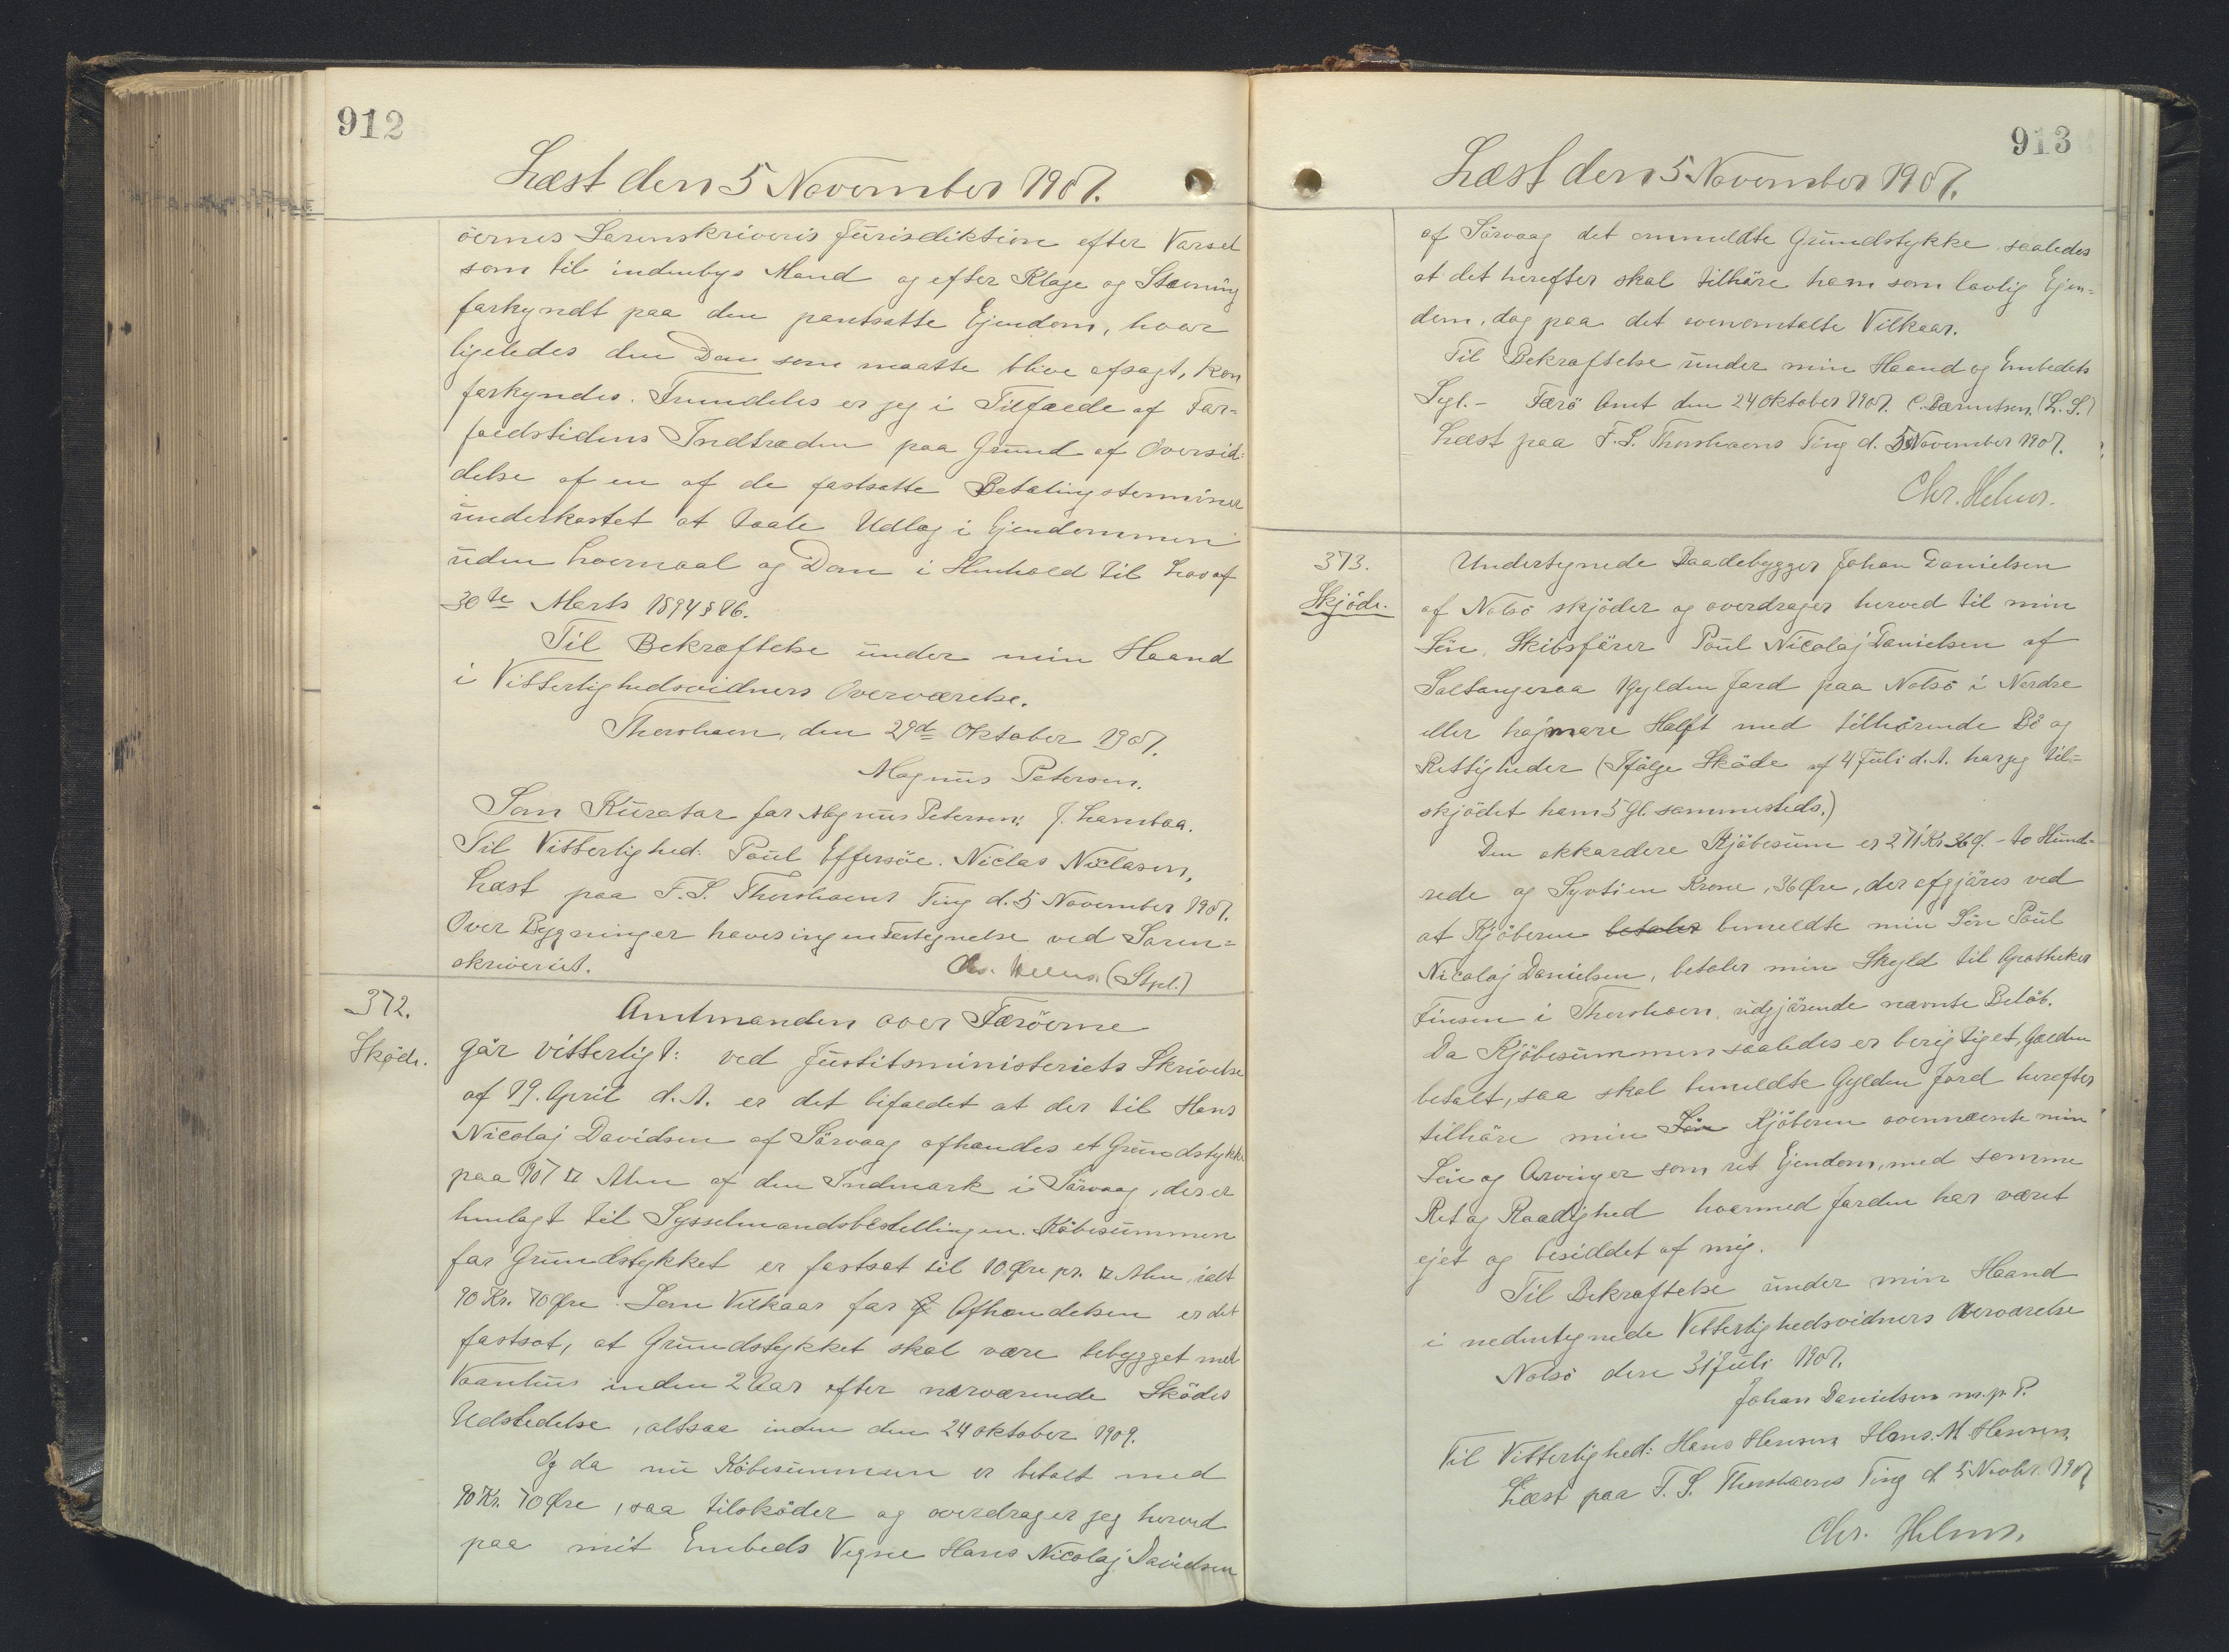 912
Læst den 5 November 1907.
öernes Sorenskriveris Jurisdiktion efter Varsel
som til indenbys Mand og efter Klage og Stævning
forkyndt paa den pantsatte Ejendom, hvor
ligeledes den Dom som maatte blive afsagt, kan
forkyndes. Fremdeles er jeg i Tilfælde af For-
faldstidens Indtræden paa Grund af Oversid-
delse af en af de fastsatte Betalingsterminer
underkastet at taale Udlæg i Ejendommen
uden Lovmaal og Dom i Henhold til Lov af
30te Marts 1894 § 16.
Til Bekræftelse under min Haand
i Vitterlighedsvidners Overværelse.
Thorshavn, den 29de Oktober 1907.
Magnus Petersen.
Som Kurator for Magnus Petersen: J. Lambaa.
Til Vitterlighed: Poul Effersöe. Niclas Niclasen,
Læst paa F. S. Thorshavns Ting d. 5 November 1907.
Over Bygninger haves ingen Fortegnelse ved Soren-
skriveriet. Chr. Helms. (Stpl.)
372.
Sköde.
Amtmanden over Færöerne
gör vitterligt: ved Justitsministeriets Skrivelse
af 19. April d. A. er det bifaldet at der til Hans
Nicolaj Davidsen af Sörvaag afhændes et Grundstykke
paa 107 □ Alen af den Indmark i Sörvaag, der er
henlagt til Sysselmandsbestillingen. Köbesummen
for Grundstykket er fastsat til 10 Øre pr. □ Alen, ialt
10 Kr. 70 Øre. Som Vilkaar for Afhændelsen er det
fastsat, at Grundstykket skal være bebygget med
Vaanhus inden 2 Aar efter nærværende Sködes
Udstedelse, altsaa inden den 24 Oktober 1909.
Og da nu Köbesummen er betalt med
10 Kr. 70 Øre, saa tilsköder og overdrager jeg herved
paa mit Embeds Vegne Hans Nicolaj Davidsen
913
Læst den 5 November 1907.
af Sörvaag det ommeldte Grundstykke saaledes
at det herefter skal tilhöre ham som lovlig Ejen-
dom, dog paa det ovenomtalte Vilkaar.
Til Bekræftelse under min Haand og Embedets
Segl. - Færö Amt den 24 Oktober 1907. C. Bærentsen. (L. S.)
Læst paa F. S. Thorshavns Ting d. 5 November 1907.
Chr. Helms.
373.
Skjöde.
Undertegnede Baadebygger Johan Danielsen
af Nolsö skjöder og overdrager herved til min
Sön, Skibsförer Poul Nicolaj Danielsen af
Saltangeraa 1 Gylden Jord paa Nolsö i Nordre
eller højmare Halft med tilhörende Bö og
Rettigheder (Ifölge Sköde af 4 Juli d. A. har jeg til-
skjödet ham 5 Gl. sammesteds.)
Den akkordere Kjöbesum er 271 Kr 36 Ø. - to Hund-
rede og Syvtien Krone, 36 Øre, der afgjöres ved
at Kjöberen betaler bemeldte min Sön Poul
Nicolaj Danielsen, betaler min Skyld til Apotheker
Finsen i Thorshavn, udgjörende nævnte Belöb.
Da Kjöbesummen saaledes er berigtiget, Gælden
betalt, saa skal bemeldte Gylden Jord herefter
tilhöre min Sön Kjöberen ovennævnte min
Sön og Arvinger som ret Ejendom, med samme
Ret og Raadighed hvormed Jorden har været
ejet og besiddet af mig.
Til Bekræftelse under min Haand
i nedentegnede Vitterlighedsvidners Overværelse
Nolsö den 31 Juli 1907.
Johan Danielsen m. p. P.
Til Vitterlighed: Hans Hansen Hans. M. Hansen.
Læst paa F. S. Thorshavns Ting d. 5 Novbr. 1907
Chr. Helms.